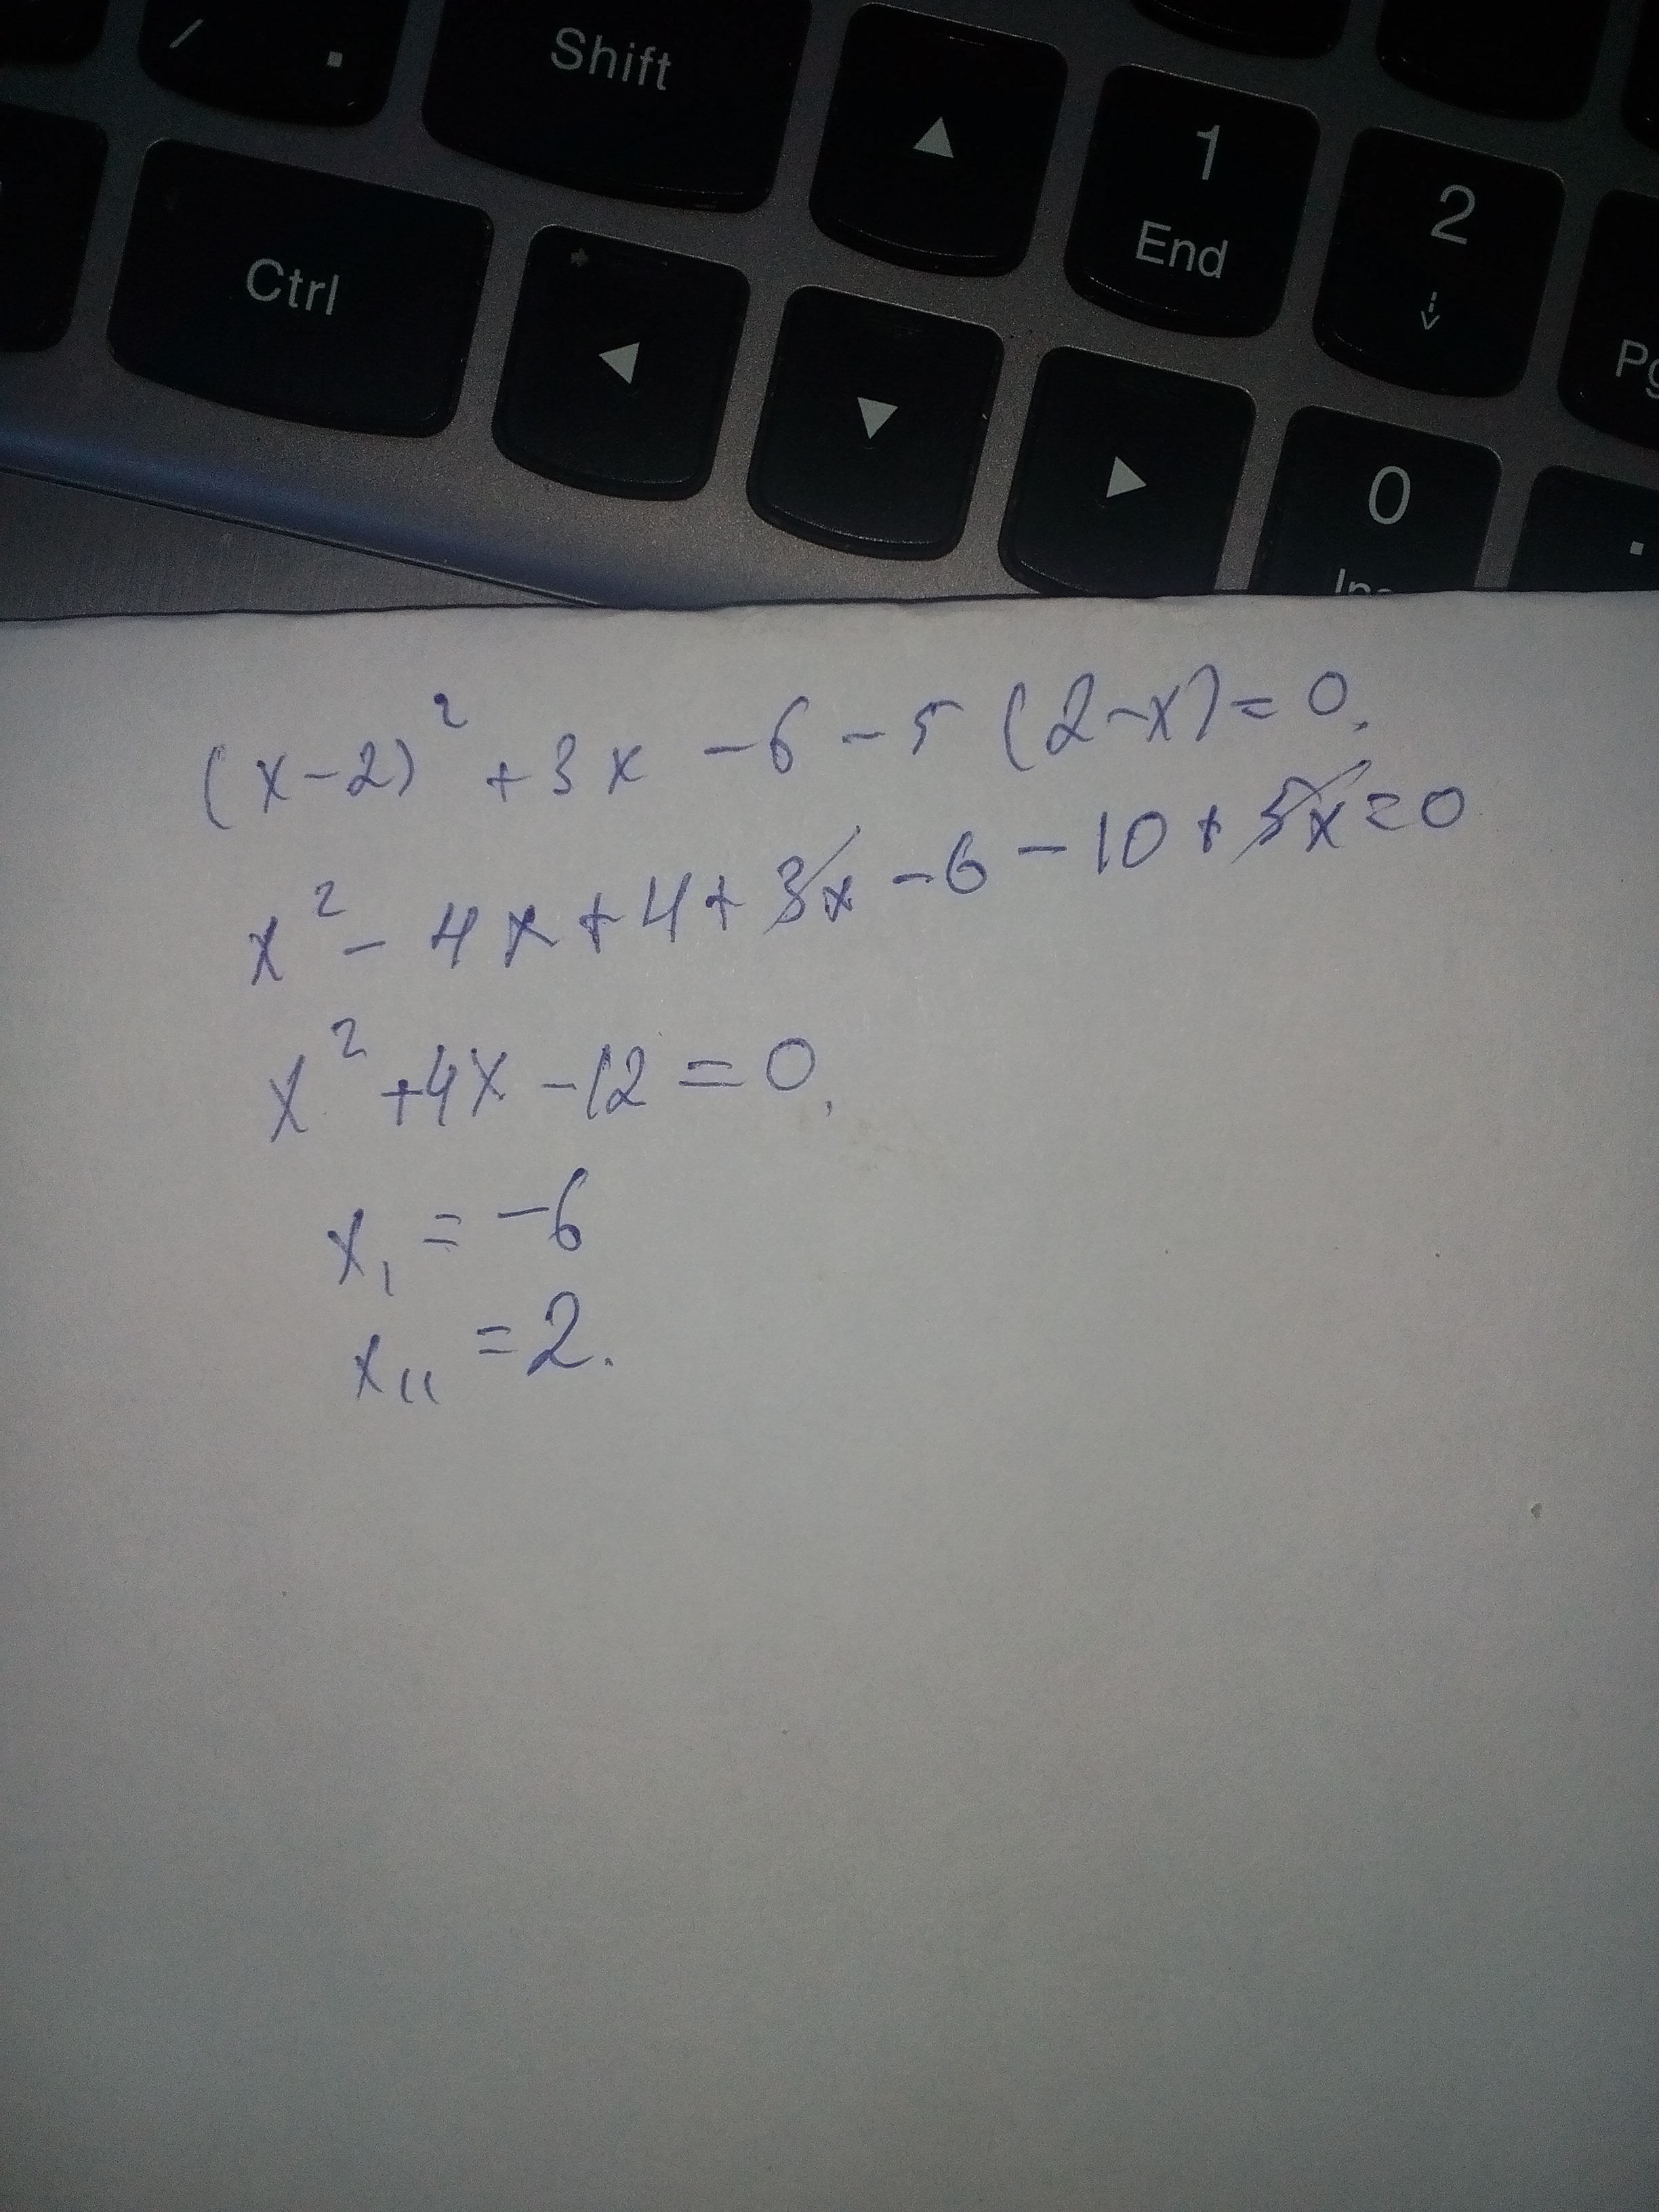 Shift
1
End
2
Ctrl
Pg
0
(x-2)² + 3x - 6 - 5 (2-x) = 0.
x² - 4x + 4 + 3x - 6 - 10 + 5x = 0
x² + 4x - 12 = 0.
x₁ = -6
x₁₁ = 2.